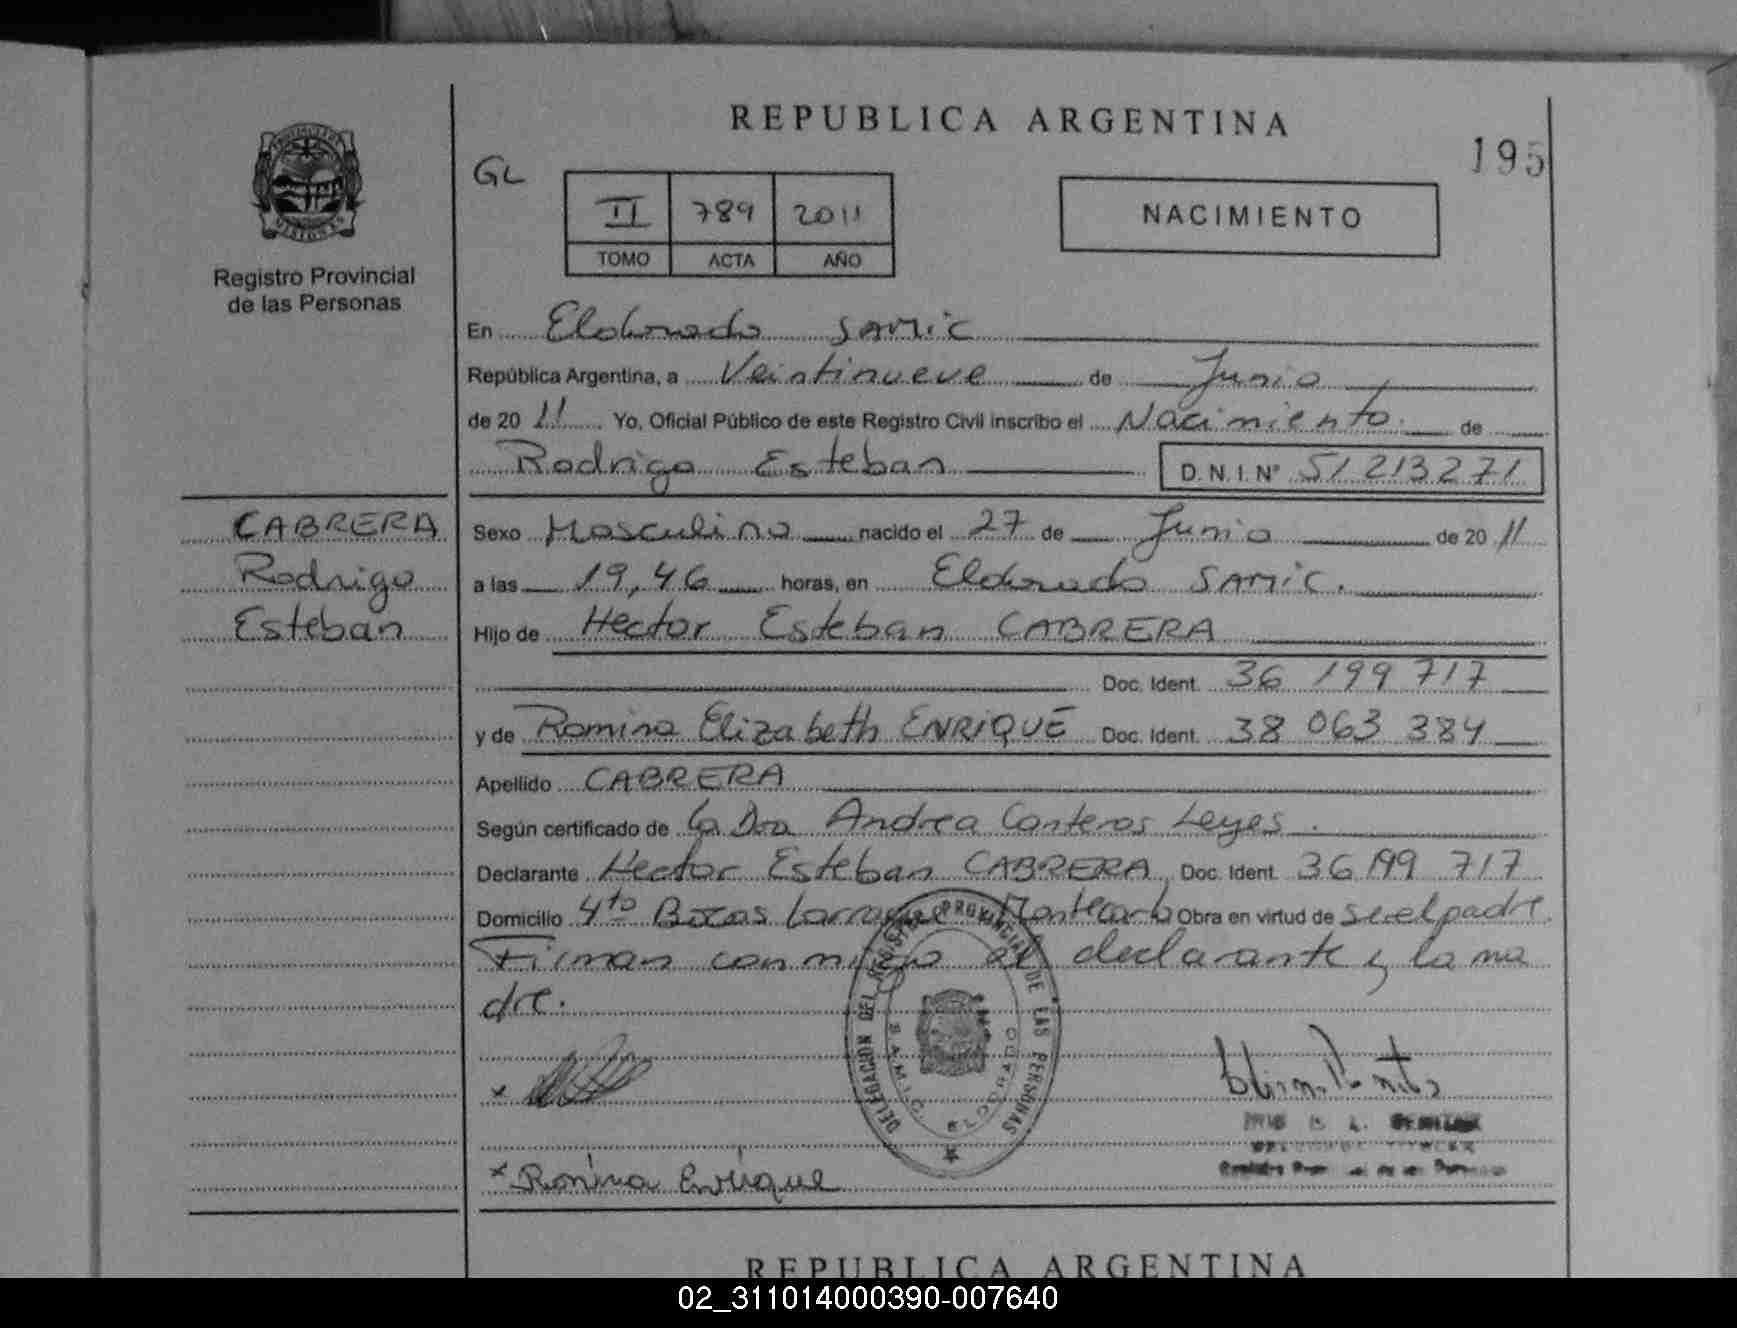 REPUBLICA ARGENTINA
195
GL
II 789 2011
TOMO ACTA AÑO
NACIMIENTO
Registro Provincial
de las Personas
En Eldorado SAMIC
República Argentina, a Veintinueve de Junio
de 20 11 Yo, Oficial Público de este Registro Civil inscribo el Nacimiento de
Rodrigo Esteban D.N.I. Nº 51 213 271
CABRERA
Rodrigo
Esteban
Sexo Masculino nacido el 27 de Junio de 20 11
a las 19,46 horas, en Eldorado SAMIC.
Hijo de Hector Esteban CABRERA
Doc. Ident. 36 199 717
y de Romina Elizabeth ENRIQUE Doc. Ident. 38 063 384
Apellido CABRERA
Según certificado de la Dra Andrea Canteros Leyes.
Declarante Hector Esteban CABRERA, Doc. Ident. 36 199 717
Domicilio 4to Bocas Montecarlo Obra en virtud de ser el padre.
Firman conmigo el declarante y la ma
dre.
DELEGACION DEL REGISTRO PROVINCIAL DE LAS PERSONAS
S.A.M.I.C. ELDORADO
x
x Romina Enrique
REPUBLICA ARGENTINA
02_311014000390-007640